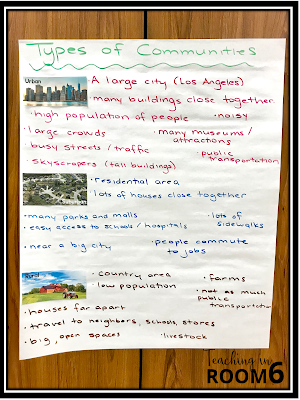 Types of Communities
Urban
· A large city (Los Angeles)
· many buildings close together
· high population of people
· noisy
· large crowds
· many museums/
attractions
· busy streets/traffic
· public
transportation
· skyscrapers (tall buildings)
· residential area
· lots of houses close together
· many parks and malls
· lots of
sidewalks
· easy access to schools/hospitals
· near a big city
· people commute
to jobs
Rural
· country area
· farms
· low population
· not as much
public
transportation
· houses far apart
· travel to neighbors, schools, stores
· big, open spaces
· livestock
Teaching in
ROOM 6